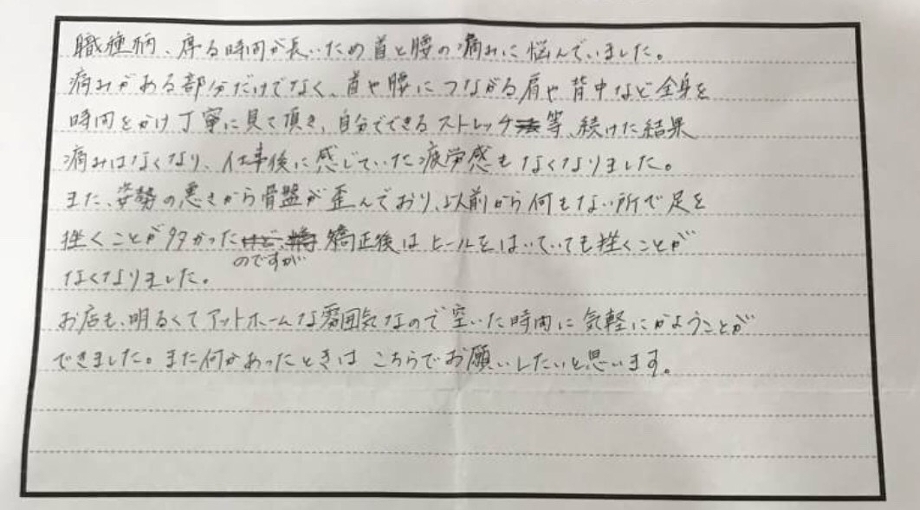 職種柄、座る時間が長いため首と腰の痛みに悩んでいました。
痛みがある部分だけでなく、首や腰につながる肩や背中など全身を
時間をかけ丁寧に見て頂き、自分でできるストレッチ等、続けた結果
痛みはなくなり、仕事後に感じていた疲労感もなくなりました。
また、姿勢の悪さから骨盤が歪んでおり、以前から何もない所で足を
挫くことが多かったのですが 矯正後はヒールをはいていても挫くことが
なくなりました。
お店も、明るくてアットホームな雰囲気なので空いた時間に気軽にかようことが
できました。また何かあったときは こちらでお願いしたいと思います。